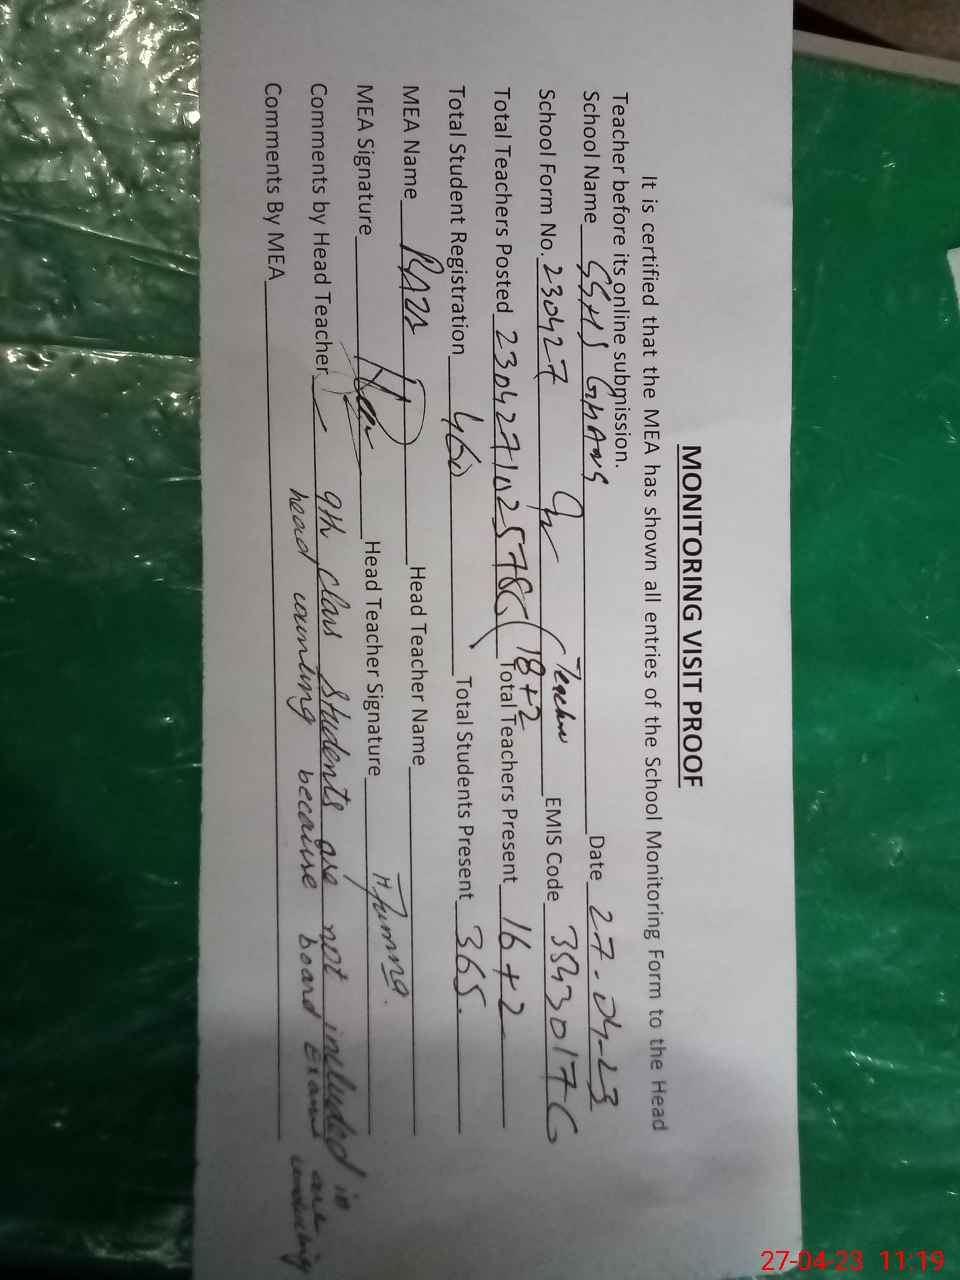 MONITORING VISIT PROOF
It is certified that the MEA has shown all entries of the School Monitoring Form to the Head
Teacher before its online submission.
School Name GGHS Date 27-04-23
School Form No. 230427 Teacher EMIS Code
Total Teachers Posted (18+2 Total Teachers Present 16+2
Total Student Registration 460 Total Students Present 365.
MEA Name Head Teacher Name
MEA Signature Head Teacher Signature
Comments by Head Teacher 9th class students are not included in
head counting because board exams are conducting
Comments By MEA
27-04-23 11:19